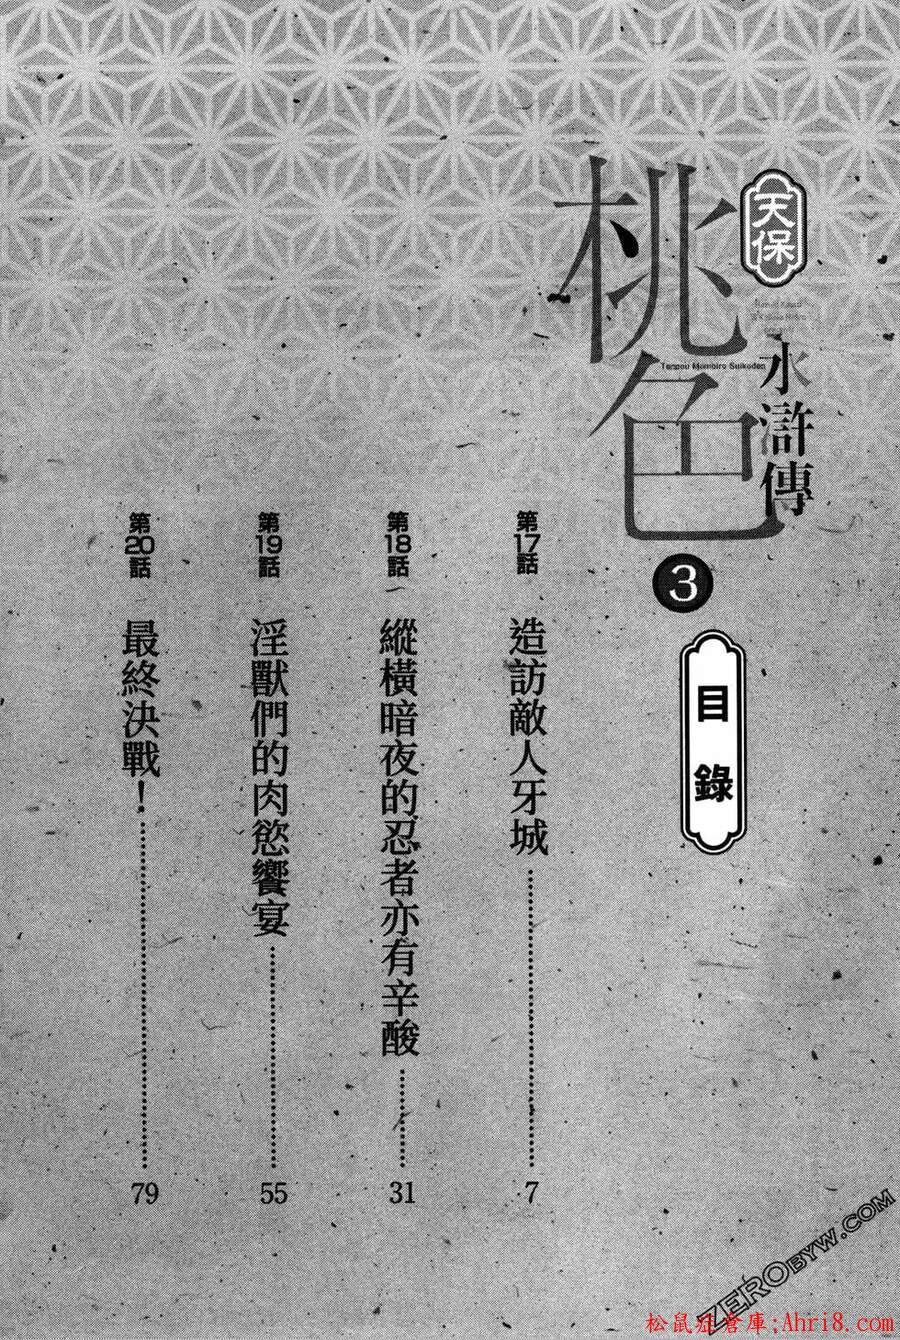 天保
桃色
水滸傳
Tenpou Momoiro Suikoden
3
目錄
第17話 造訪敵人牙城 7
第18話 縱橫暗夜的忍者亦有辛酸 31
第19話 淫獸們的肉慾饗宴 55
第20話 最終決戰！ 79
ZEROBYW.COM
松鼠症倉庫;Ahri8.com